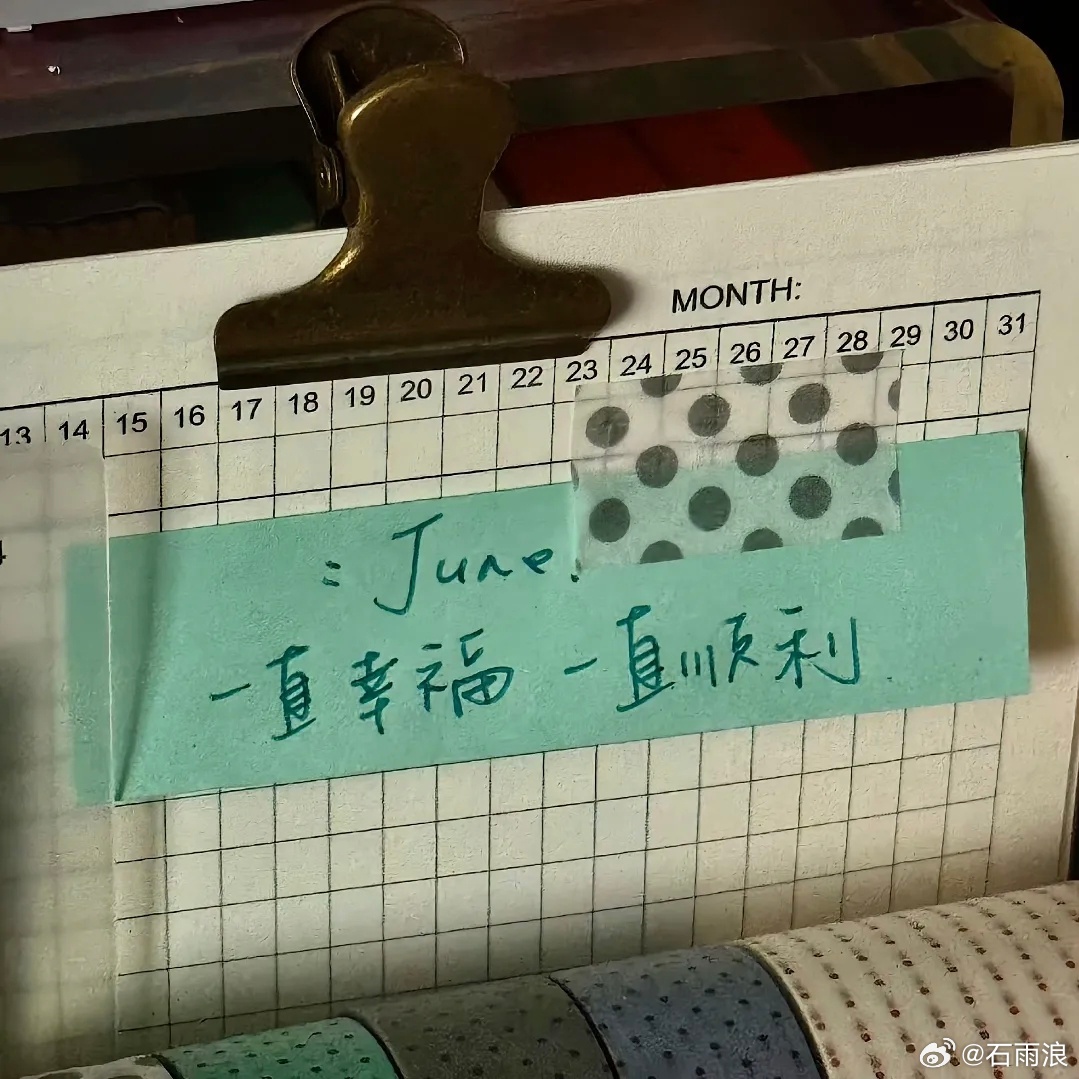 MONTH:
13 14 15 16 17 18 19 20 21 22 23 24 25 26 27 28 29 30 31
: June.
一直幸福 一直顺利
@石雨浪